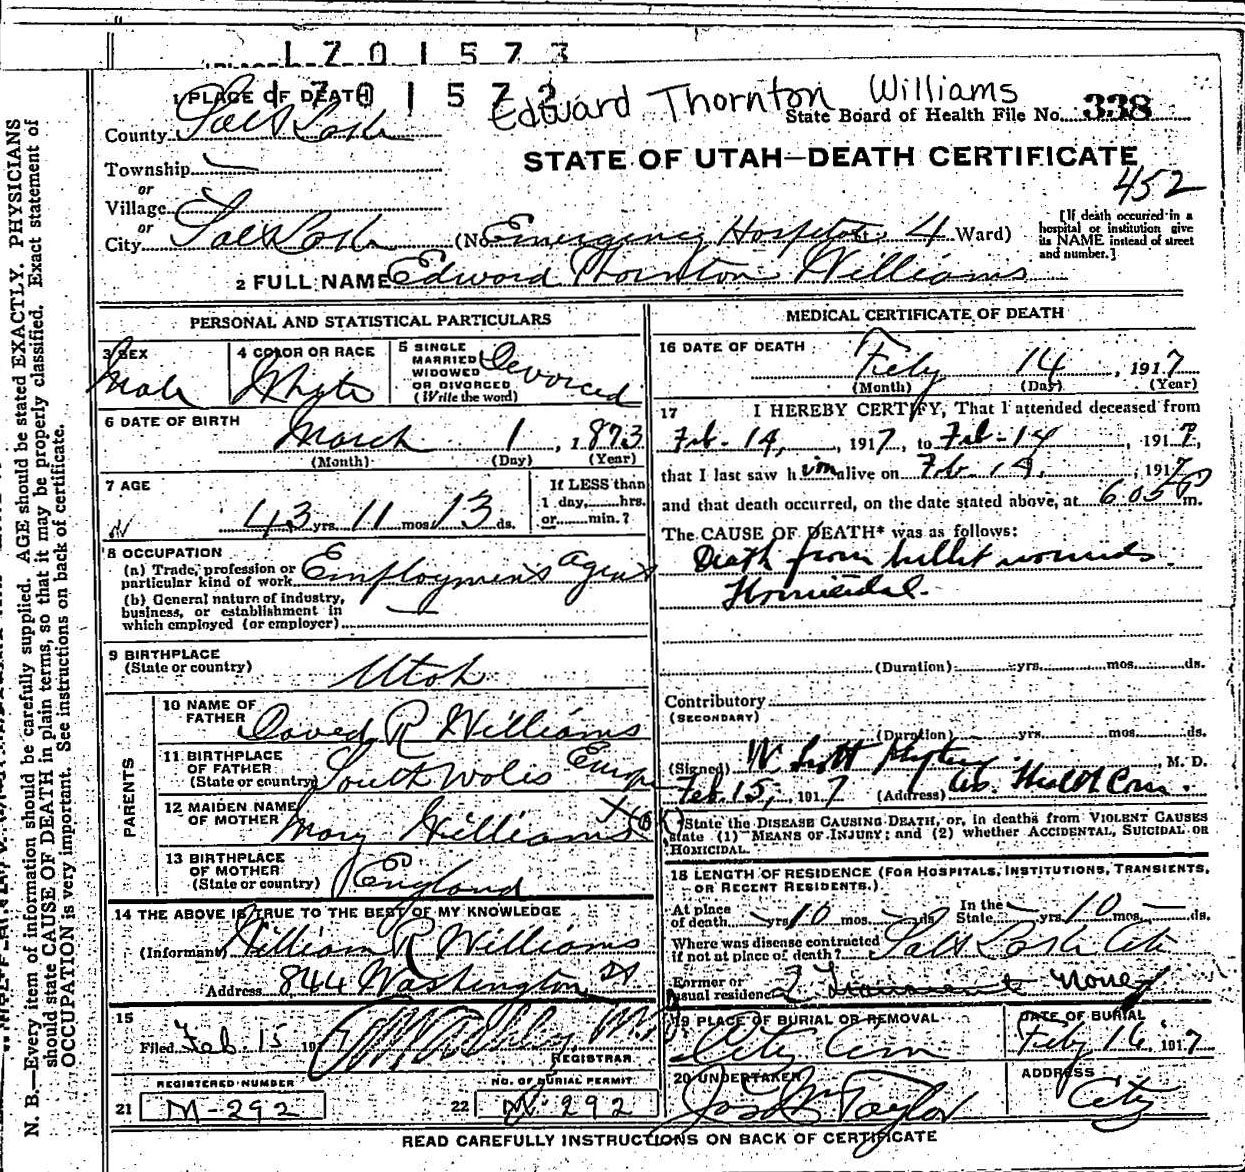 1701573
170157
Edward Thornton Williams
1 PLACE OF DEATH
State Board of Health File No. 338
County Salt Lake
STATE OF UTAH—DEATH CERTIFICATE
452
Township
or
Village
or
City Salt Lake (No. Emergency Hospital 4 Ward)
[If death occurred in a hospital or institution give its NAME instead of street and number.]
2 FULL NAME Edward Thornton Williams
PERSONAL AND STATISTICAL PARTICULARS
3 SEX Male
4 COLOR OR RACE White
5 SINGLE MARRIED WIDOWED OR DIVORCED (Write the word) Devorced
6 DATE OF BIRTH March 1, 1873
(Month) (Day) (Year)
7 AGE 43 yrs. 11 mos. 13 ds.
If LESS than 1 day, hrs. or min.?
8 OCCUPATION
(a) Trade, profession or particular kind of work Employment agent
(b) General nature of industry, business, or establishment in which employed (or employer)
9 BIRTHPLACE (State or country) Utah
PARENTS
10 NAME OF FATHER David R Williams
11 BIRTHPLACE OF FATHER (State or country) South Wales Europe
12 MAIDEN NAME OF MOTHER Mary Williams (OK)
13 BIRTHPLACE OF MOTHER (State or country) England
14 THE ABOVE IS TRUE TO THE BEST OF MY KNOWLEDGE
(Informant) William R Williams
Address 844 Washington St
15
Filed Feb. 15 191
REGISTRAR
REGISTERED NUMBER
21 M-292
NO. OF BURIAL PERMIT
22 M-292
MEDICAL CERTIFICATE OF DEATH
16 DATE OF DEATH Feby 14, 1917
(Month) (Day) (Year)
17 I HEREBY CERTIFY, That I attended deceased from
Feb-14, 1917, to Feb-14, 1917,
that I last saw him alive on Feb 14, 1917
and that death occurred, on the date stated above, at 6:05 P m.
The CAUSE OF DEATH* was as follows:
Death from bullet wounds.
Homicidal.
(Duration) yrs. mos. ds.
Contributory
(SECONDARY)
(Duration) yrs. mos. ds.
(Signed) W. Scott , M. D.
Feb. 15, 1917 (Address) Health Com.
State the DISEASE CAUSING DEATH, or, in deaths from VIOLENT CAUSES state (1) MEANS OF INJURY; and (2) whether ACCIDENTAL, SUICIDAL OR HOMICIDAL.
18 LENGTH OF RESIDENCE (FOR HOSPITALS, INSTITUTIONS, TRANSIENTS, OR RECENT RESIDENTS.)
At place of death yrs 10 mos. ds. In the State yrs. 10 mos. ds.
Where was disease contracted if not at place of death? Salt Lake City
Former or usual residence None
19 PLACE OF BURIAL OR REMOVAL City Cem
DATE OF BURIAL Feby 16, 1917
20 UNDERTAKER Taylor
ADDRESS City
READ CAREFULLY INSTRUCTIONS ON BACK OF CERTIFICATE
N. B.—Every item of information should be carefully supplied. AGE should be stated EXACTLY. PHYSICIANS
should state CAUSE OF DEATH in plain terms, so that it may be properly classified. Exact statement of
OCCUPATION is very important. See instructions on back of certificate.